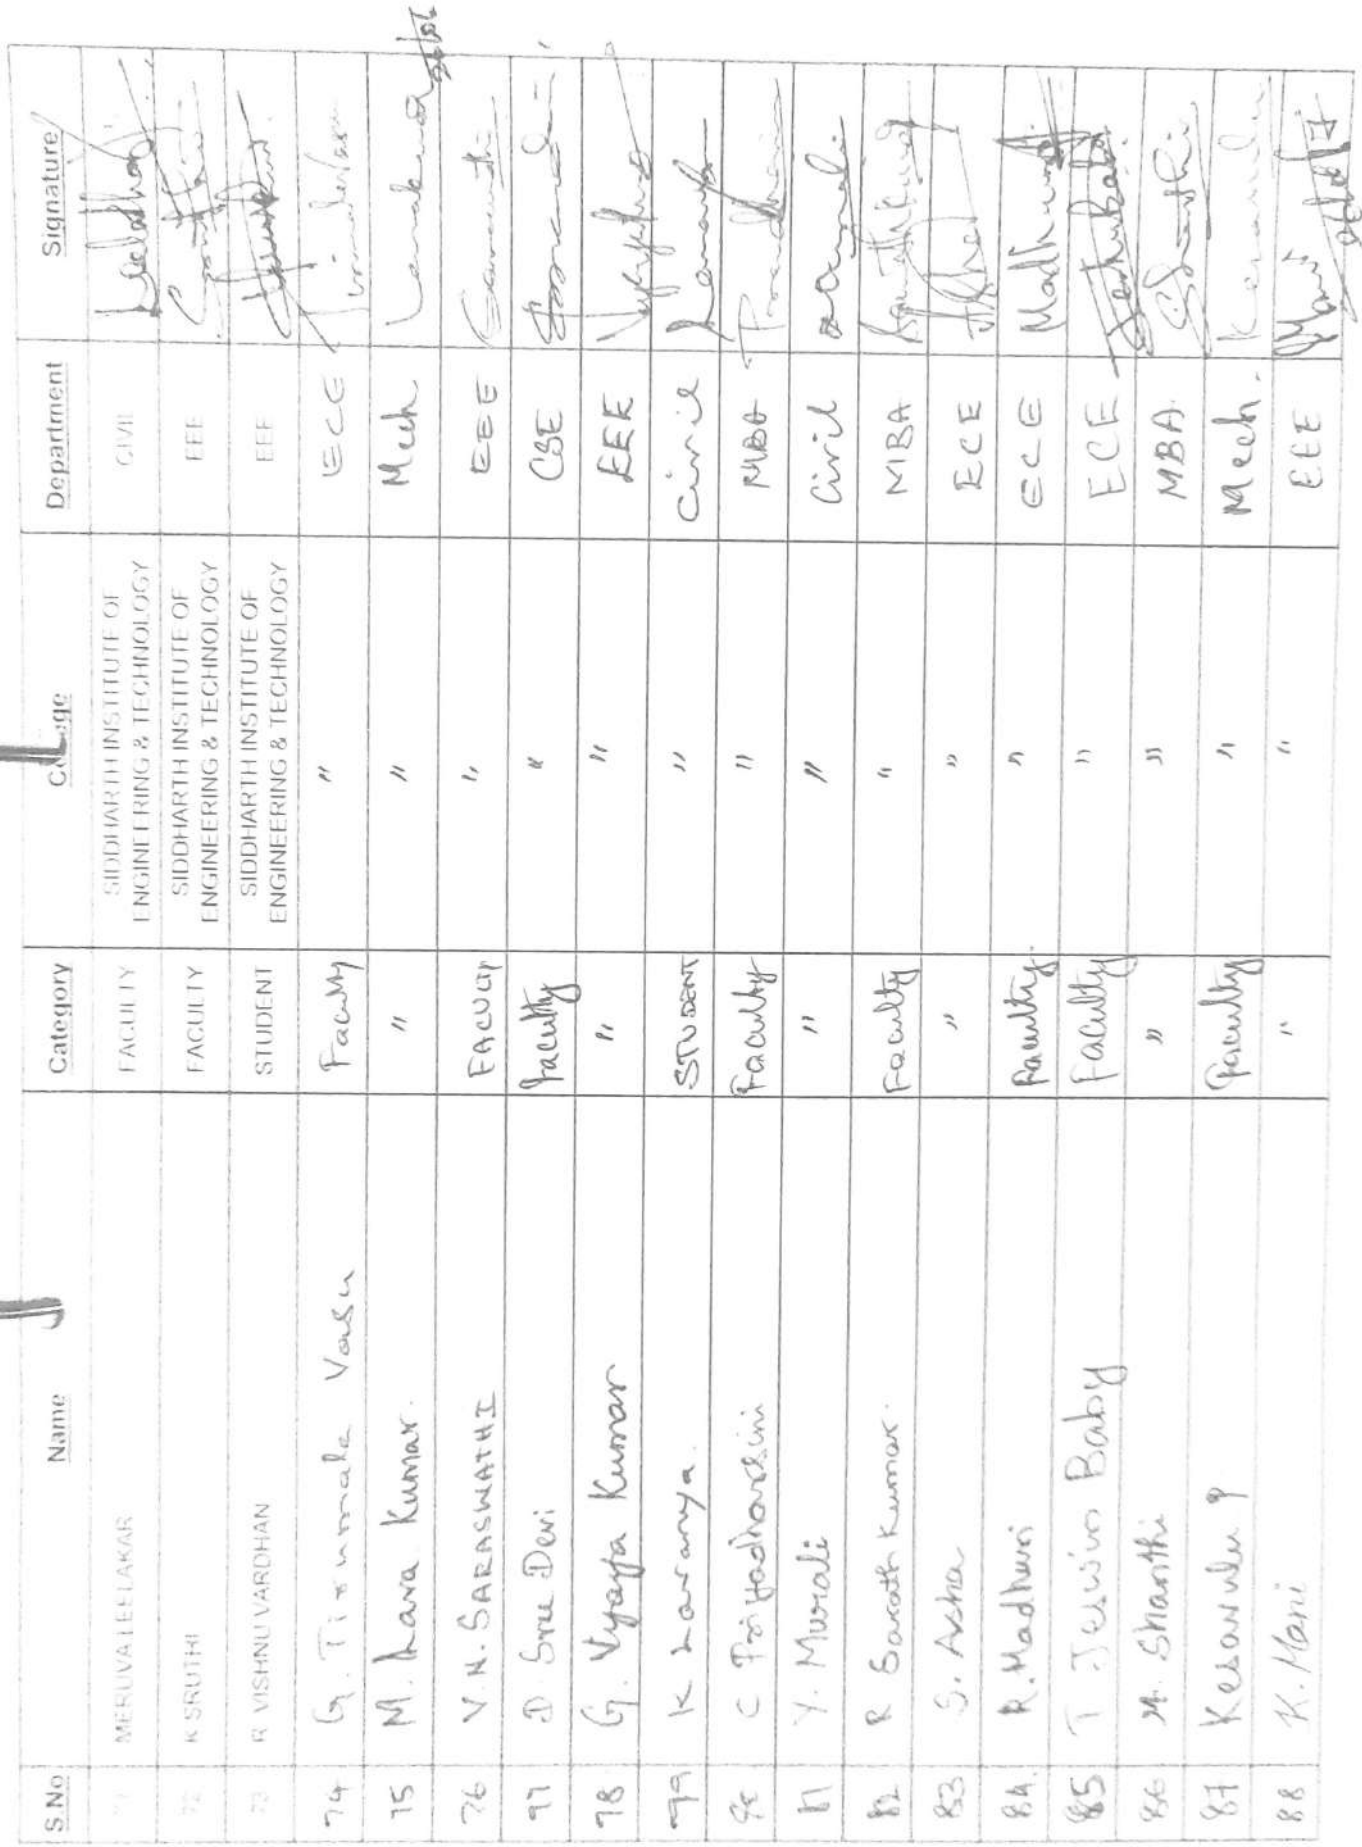 S.No Name Category College Department Signature
71 MERUVA LEELAKAR FACULTY SIDDHARTH INSTITUTE OF
ENGINEERING & TECHNOLOGY CIVIL
72 K SRUTHI FACULTY SIDDHARTH INSTITUTE OF
ENGINEERING & TECHNOLOGY EEE
73 R VISHNU VARDHAN STUDENT SIDDHARTH INSTITUTE OF
ENGINEERING & TECHNOLOGY EEE
74 G. Tirumala Vasu Faculty " ECE
75 M. Lava Kumar. " " Mech
76 V. N. SARASWATHI FACULTY " EEE
77 D. Sree Devi Faculty " CSE
78 G. Vijaya Kumar " " EEE
79 K Lavanya. STUDENT " Civil Lavanya
80 C Priyadharsini Faculty " MBA
81 Y. Murali " " Civil
82 R Sarath Kumar. Faculty " MBA
83 S. Asha " " ECE
84. R. Madhuri Faculty. " ECE Madhuri
85 T. Jeswin Baby Faculty " ECE
86 M. Shanthi " " MBA. Shanthi
87 Kesavulu P Faculty " Mech. Kesavulu
88 K. Mani " " EEE Mani